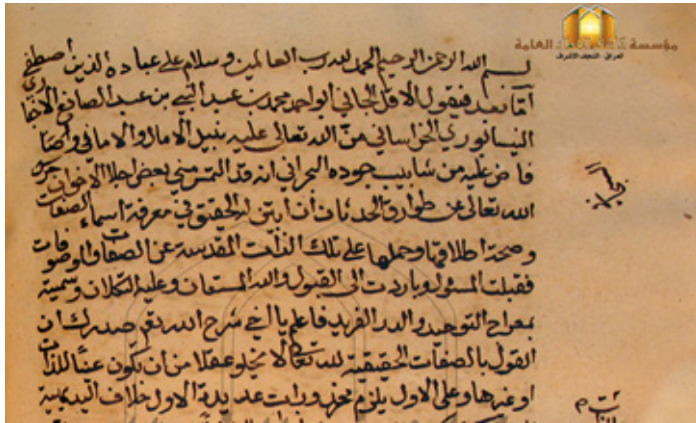 مؤسسة كاشف الغطاء العامة
العراق - النجف الاشرف
بسم الله الرحمن الرحيم الحمد لله رب العالمين وسلام على عباده الذين اصطفى
اما بعد فيقول الاقل الجاني ابو احمد محمد بن عبد النبي بن عبد الصانع الاخباري
النيسابوري الخراساني من الله تعالى عليه بنيل الامال والاماني
فاض عليه من شابيب جوده البحراني انه قد التمس مني بعض اجلا الاخوان حرس
الله تعالى عن طوارق الحدثان ان ابين له الحقيق في معرفة اسماء الصفات
وصحة اطلاقها وحملها على تلك الذات المقدسة عن الصفات
فقبلت المسئول وبادرت الى القبول والله المستعان وعليه التكلان وسميته
بمعراج التوحيد والدر الفريد فاعلم يا اخي شرح الله تعم صدرك ان
القول بالصفات الحقيقية لله تعالى لا يخلو عقلا من ان تكون عينا للذات
او غيرها وعلى الاول يلزم محذورات عديدة الاول خلاف البديهية